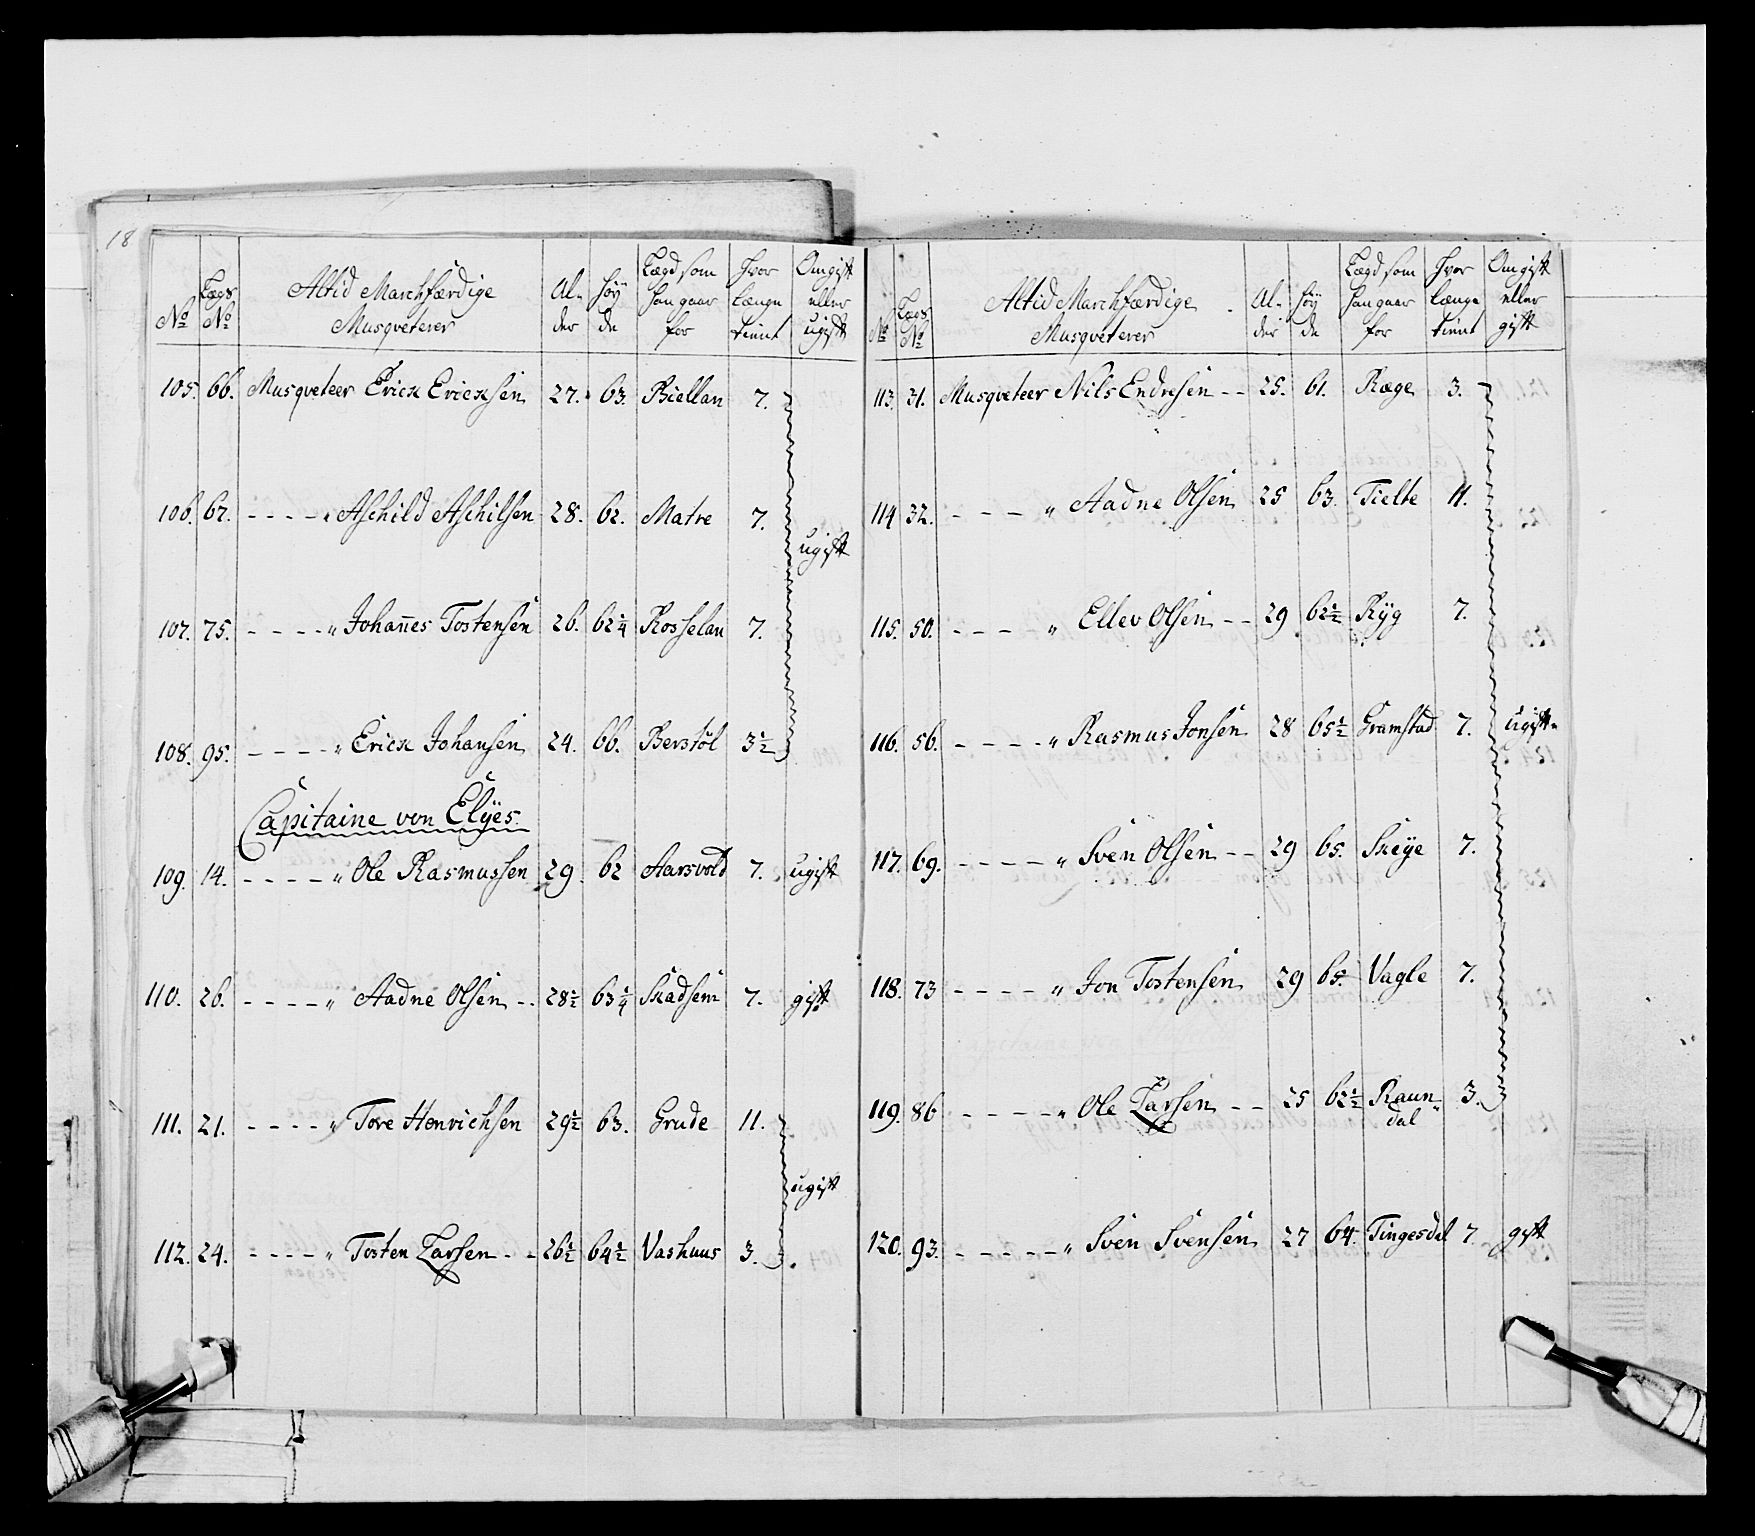 18
No Lægs No Altid Marchfærdige Musqveterer Al- der Høy- de Lægd som han gaar for Hvor længe tient Om gift eller ugift
105. 66. Musqveteer Erick Ericksen 27. 63. Biellan 7.
106. 67. - - - - " Aschild Aschilsen 28. 62. Matre 7.
ugift
107. 75. - - - - " Johannes Tostensen 26. 62 1/4 Rosselan 7.
108. 95. - - - - " Erick Johansen 24. 66. Berstöl 3 1/2
Capitaine von Elÿes.
109. 14. - - - - " Ole Rasmussen 29. 62 Aarsvold 7. ugift
110. 26. - - - - " Aadne Olsen - - 28 1/2 63 1/4 Skadsem 7. gift
111. 21. - - - - " Tore Henrichsen 29 1/2 63. Grude 11.
ugift
112. 24. - - - - " Tosten Larsen - - 26 1/2 64 1/2 Vashuus 3.
No Lægs No Altid Marchfærdige Musqveterer Al- der Høy- de Lægd som han gaar for Hvor længe tient Om gift eller gift
113. 31. Musqveteer Nils Endresen - - 25. 61. Ræge 3.
114 32. - - - " Aadne Olsen 25 63. Tielte 11.
115. 50. - - - " Ellev Olsen - - 29 62 1/2 Ryg 7.
116. 56. - - - - " Rasmus Jonsen 28 65 1/2 Gramstad 7. Ugift
117. 69. - - - - " Sven Olsen - - 29 65. Skeÿe 7.
118. 73 - - - - " Jon Tostensen 29 65. Vagle 7.
119. 86 - - - - " Ole Larsen - - 25 62 1/2 Raun- 3.
dal
120. 93. - - - - - " Sven Svensen 27 64. Tingesdal 7. gift